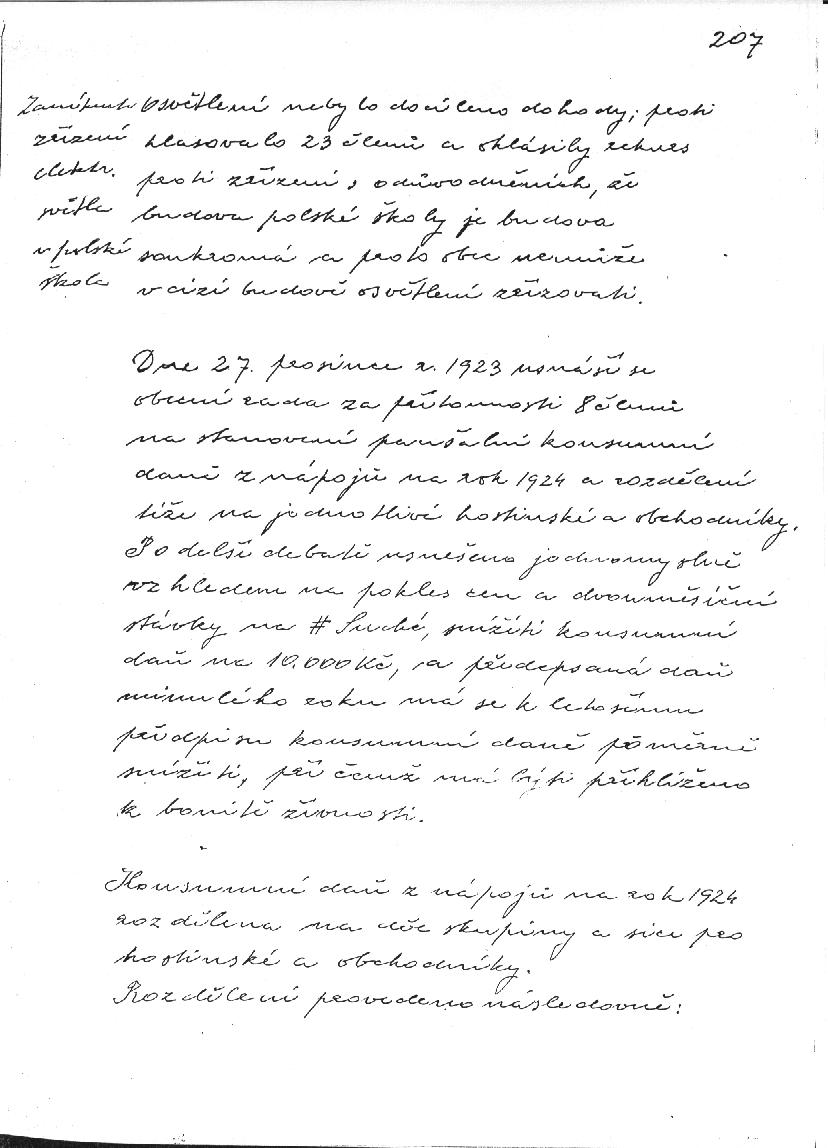 207
Zamítnutí
zřízení
elektr.
světla
v polské
škole
Osvětlení nebylo docíleno dohody; proti
hlasovalo 23 členů a ohlásily rekurs
proti zřízení s odůvodněním, že
budova polské školy je budova
soukromá a proto obec nemůže
v cizí budově osvětlení zřizovati.
Dne 27. prosince r. 1923 usnáší se
obecní rada za přítomnosti 8 členů
na stanovení paušální konsumní
daně z nápojů na rok 1924 a rozdělení
tíže na jednotlivé hostinské a obchodníky.
Po delší debatě usnešeno jednomyslně
vzhledem na pokles cen a dvouměsíční
stávky na # Suché, snížiti konsumní
daň na 10.000 Kč, a předepsaná daň
minulého roku má se k letošnímu
předpisu konsumní daně poměrně
snížiti, při čemž má býti přihlíženo
k bonitě živnosti.
Konsumní daň z nápojů na rok 1924
rozdělena na dvě skupiny a sice pro
hostinské a obchodníky.
Rozdělení provedeno následovně: